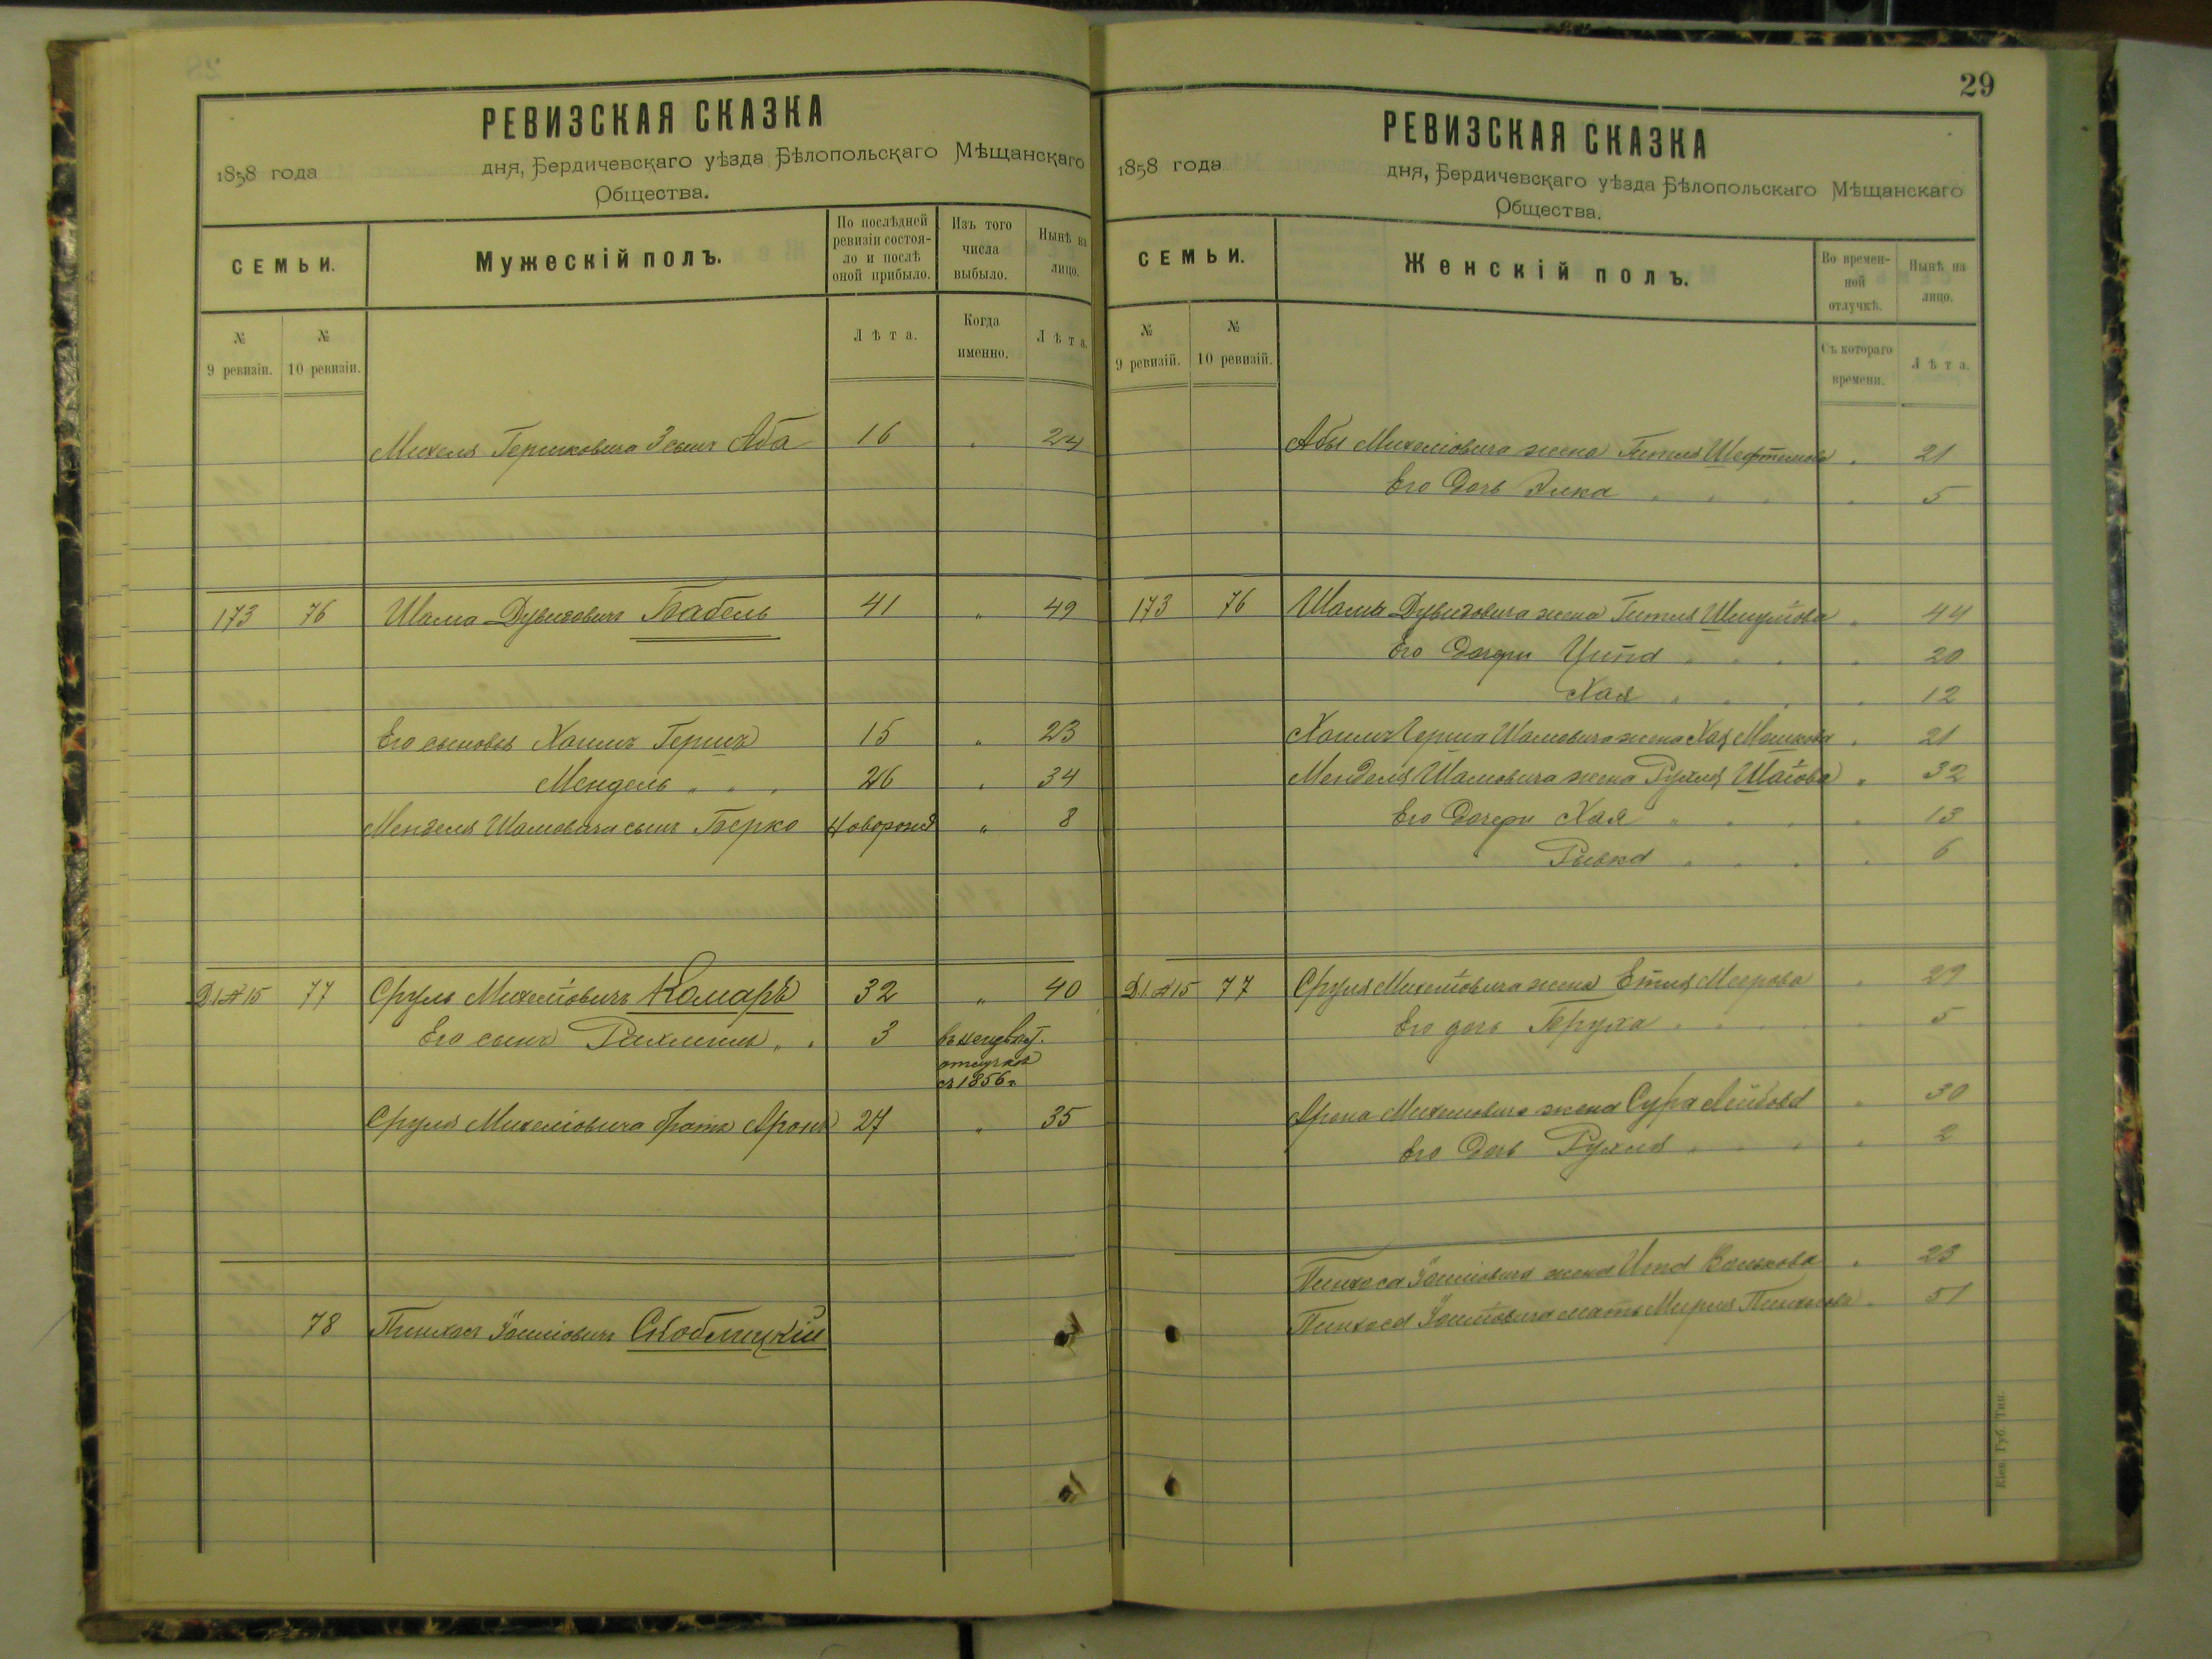 РЕВИЗСКАЯ СКАЗКА
1858 года дня, Бердичевскаго уѣзда Бѣлопольскаго Мѣщанскаго
Общества.
СЕМЬИ.
Мужескій полъ.
По послѣдней ревизіи состоя-ло и послѣ оной прибыло.
Изъ того числа выбыло.
Нынѣ на лицо.
№ 9 ревизіи.
№ 10 ревизіи.
Лѣта.
Когда именно.
Лѣта.
Михеля Гершковича 3 сынъ Аба 16 " 24
173 76 Шама Дувидовичъ Бабель 41 " 49
Его сыновья Хаимъ Гершъ 15 " 23
Мендель " " " 26 " 34
Менделя Шамовича сынъ Берко новорожд 8
Д.1 № 15 77 Сруль Михелiовичъ Комаръ 32 " 40
Его сынъ Рахмиль " " 3 въ неизвѣст.
отлучкѣ
съ 1856 г.
Сруля Михелiовича братъ Аронъ 27 " 35
78 Пинхасъ Iосiовичъ Скоблицкій
29
РЕВИЗСКАЯ СКАЗКА
1858 года дня, Бердичевскаго уѣзда Бѣлопольскаго Мѣщанскаго
Общества.
СЕМЬИ.
Женскій полъ.
Во времен-ной отлучкѣ.
Нынѣ на лицо.
№ 9 ревизій.
№ 10 ревизій.
Съ котораго времени.
Лѣта.
Абы Михелiовича жена Гитля Шефтелова " 21
Его дочь Элка " " " " 5
173 76 Шамы Дувидовича жена Гитля Шмулiова " 44
Его дочери Ципа " " " " 20
Хая " " " " 12
Хаимъ Герша Шамовича жена Хая Мошкова " 21
Менделя Шамовича жена Рухля Шаiова " 32
Его дочери Хая " " " " 13
Рывка " " " " 6
Д.1 № 15 77 Сруля Михелiовича жена Етля Меерова " 29
Его дочь Бруха " " " 5
Арона Михелiовича жена Сура Лейбова " 30
Его дочь Рухля " " " " 2
Пинхаса Iосiовича жена " 23
Пинхаса Iосiовича мать Пинхасова " 51
Кіев. Губ. Тип.